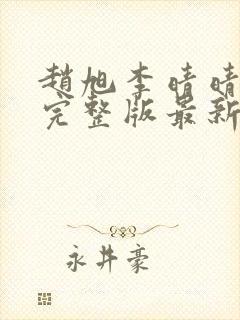 趙旭李晴晴
完整版最新
永井豪